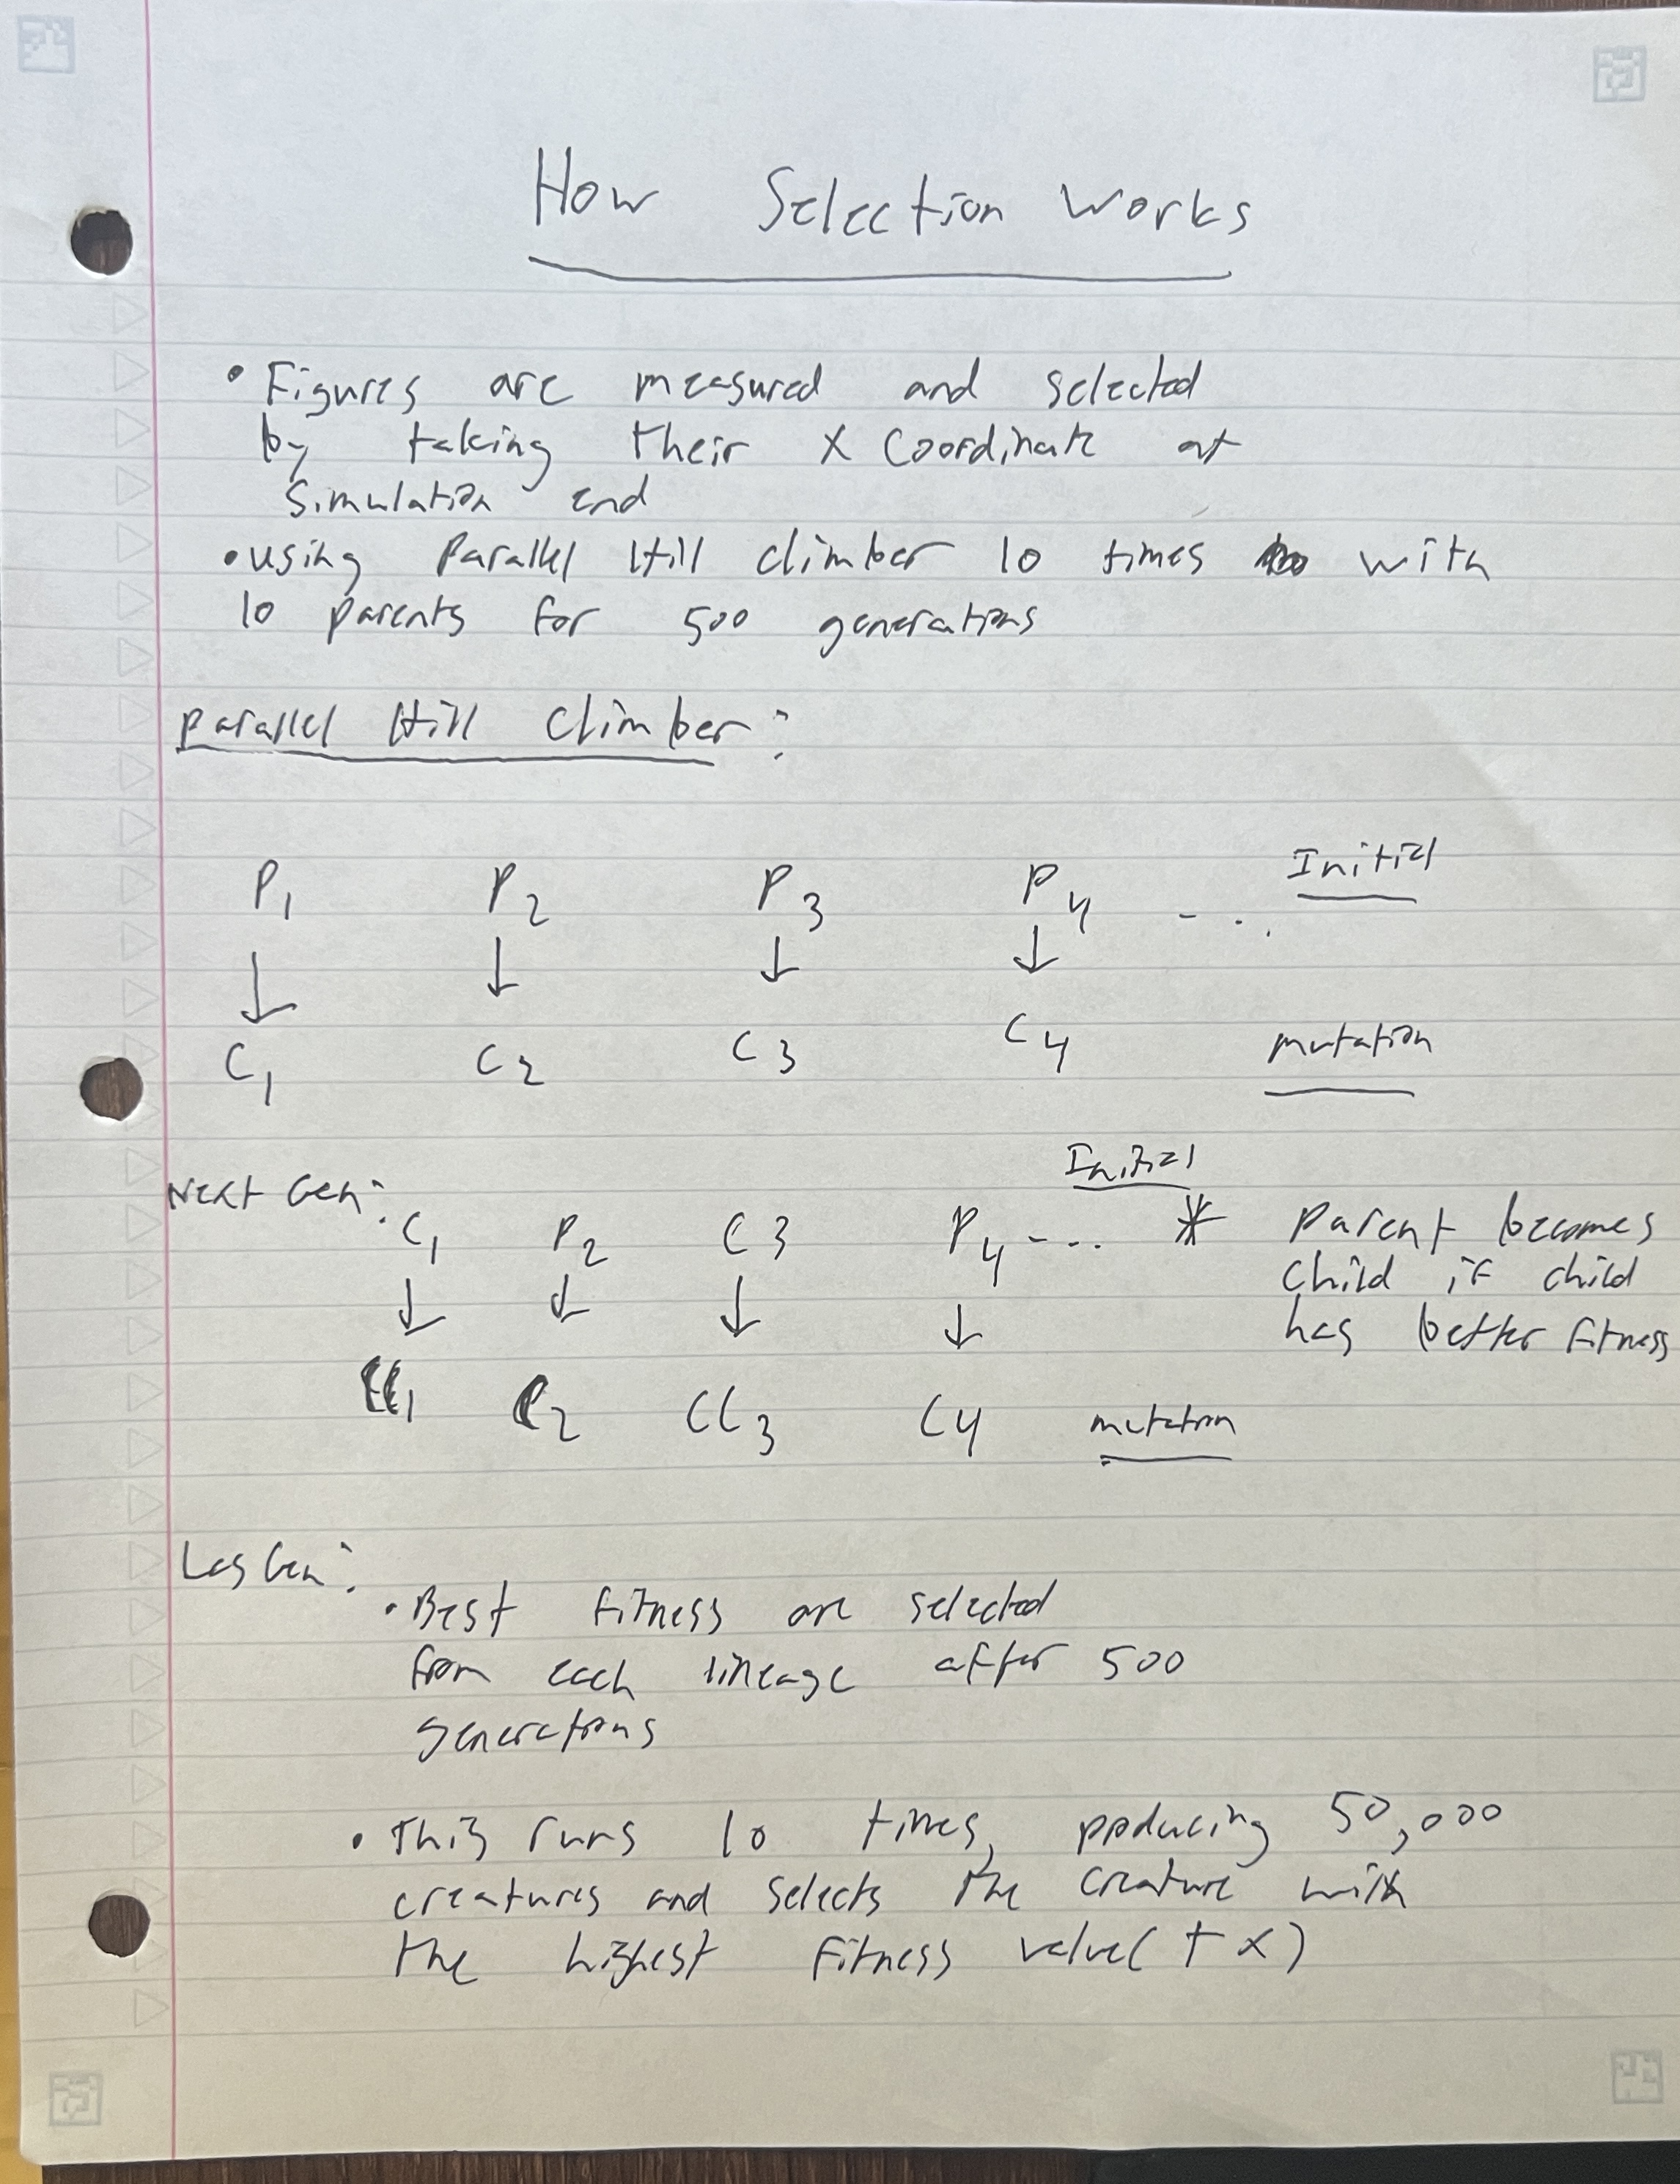 How Selection Works
• Figures are measured and selected
by taking their X Coordinate at
Simulation end
• Using Parallel Hill climber 10 times with
10 parents for 500 generations
Parallel Hill Climber:
P1 P2 P3 P4 - . . Initial
↓ ↓ ↓ ↓
C1 C2 C3 C4 mutation
Initial
Next Gen: C1 P2 C3 P4 - . . * Parent becomes
Child if child
has better fitness
↓ ↓ ↓ ↓
CC1 C2 CC3 C4 mutation
Las Gen:
• Best fitness are selected
from each lineage after 500
generations
• This runs 10 times, producing 50,000
creatures and selects the creature with
the highest fitness value (+x)